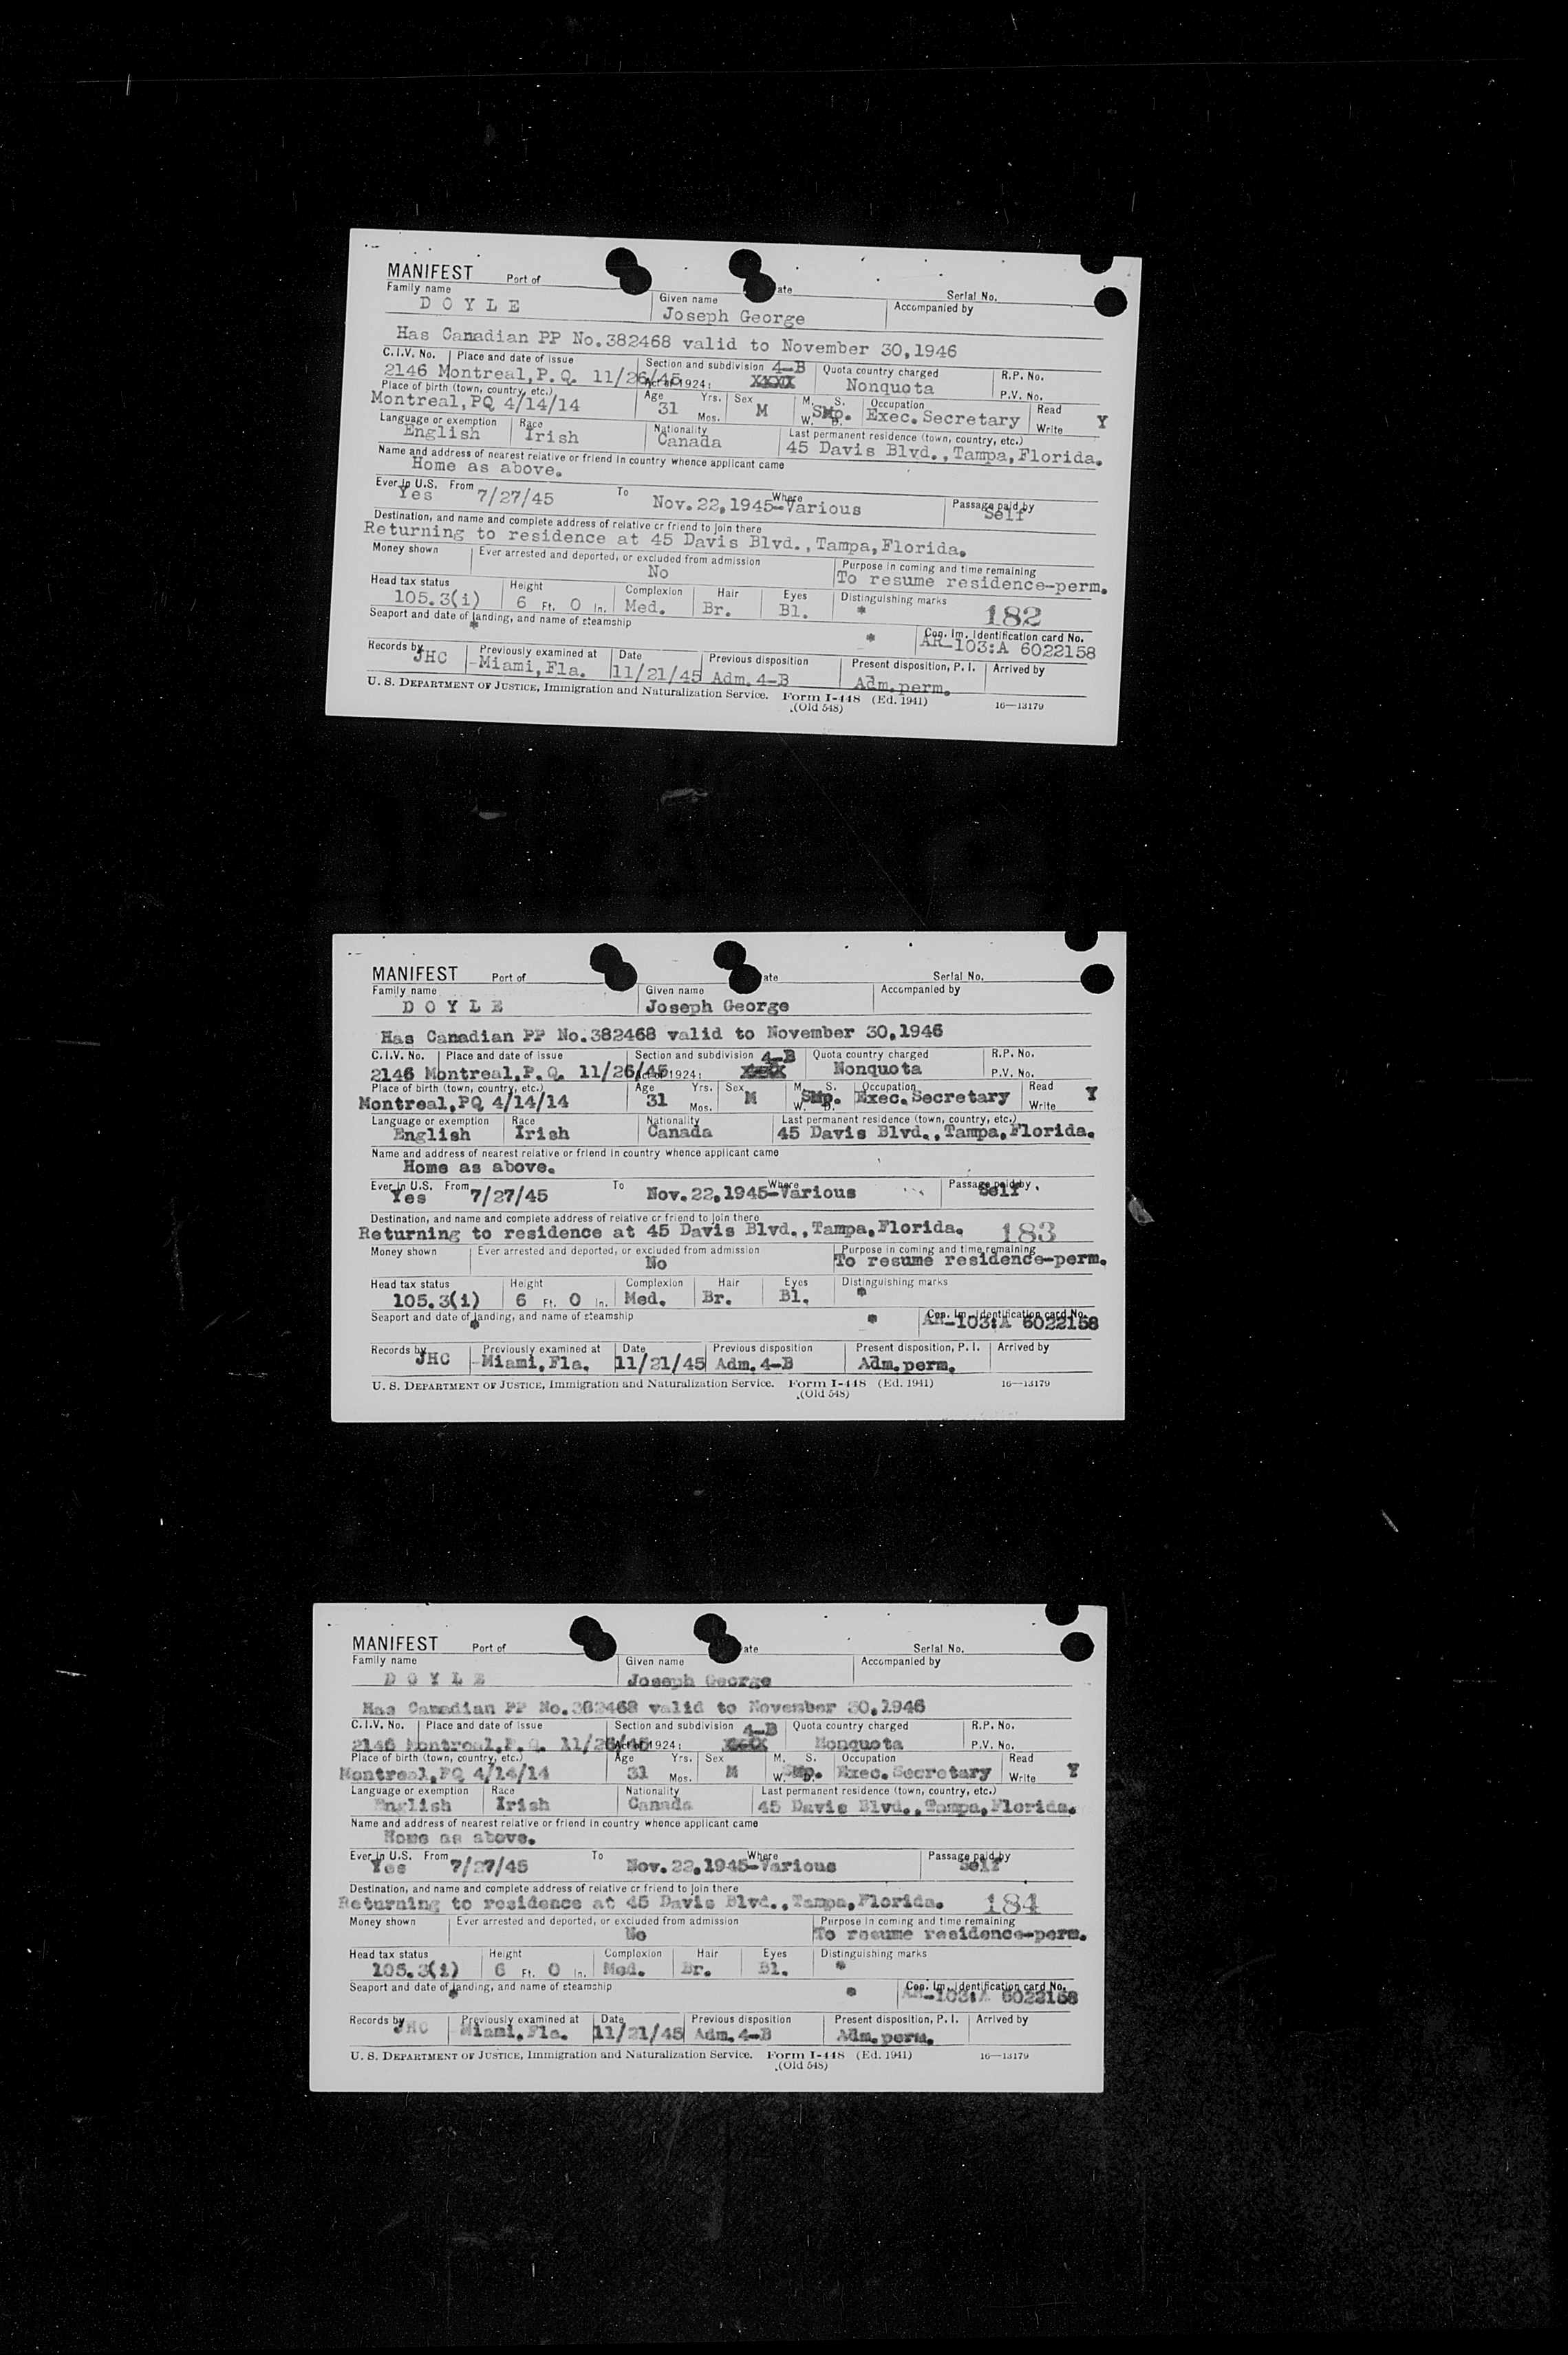 MANIFEST Port of ate Serial No.
Family name Given name Accompanied by
D O Y L E Joseph George
Has Canadian PP No.382468 valid to November 30,1946
C.I.V. No. Place and date of issue Section and subdivision 4-B Quota country charged R.P. No.
2146 Montreal,P.Q. 11/26/45 Act of 1924: XXXX Nonquota P.V. No.
Place of birth (town, country, etc.) Age Yrs. Sex M. S. Occupation Read
Montreal,PQ 4/14/14 31 Mos. M W. D. Exec.Secretary Write Y
Language or exemption Race Nationality Last permanent residence (town, country, etc.)
English Irish Canada 45 Davis Blvd.,Tampa,Florida.
Name and address of nearest relative or friend in country whence applicant came
Home as above.
Ever in U.S. From To Where Passage paid by
Yes 7/27/45 Nov.22,1945-Various Self
Destination, and name and complete address of relative or friend to join there
Returning to residence at 45 Davis Blvd.,Tampa,Florida.
Money shown Ever arrested and deported, or excluded from admission Purpose in coming and time remaining
No To resume residence-perm.
Head tax status Height Complexion Hair Eyes Distinguishing marks
105.3(i) 6 Ft. 0 In. Med. Br. Bl. * 182
Seaport and date of landing, and name of steamship Con. Im. identification card No.
* * AR-103:A 6022158
Records by Previously examined at Date Previous disposition Present disposition, P. I. Arrived by
JHC -Miami,Fla. 11/21/45 Adm.4-B Adm.perm.
U. S. DEPARTMENT OF JUSTICE, Immigration and Naturalization Service. Form I-448 (Ed. 1941) 16—13179
(Old 548)
MANIFEST Port of ate Serial No.
Family name Given name Accompanied by
D O Y L E Joseph George
Has Canadian PP No.382468 valid to November 30,1946
C.I.V. No. Place and date of issue Section and subdivision 4-B Quota country charged R.P. No.
2146 Montreal,P.Q. 11/26/45 Act of 1924: Nonquota P.V. No.
Place of birth (town, country, etc.) Age Yrs. Sex M. S. Occupation Read
Montreal,PQ 4/14/14 31 Mos. M W. D. Exec.Secretary Write Y
Language or exemption Race Nationality Last permanent residence (town, country, etc.)
English Irish Canada 45 Davis Blvd.,Tampa,Florida.
Name and address of nearest relative or friend in country whence applicant came
Home as above.
Ever in U.S. From To Where Passage paid by
Yes 7/27/45 Nov.22,1945-Various Self
Destination, and name and complete address of relative or friend to join there
Returning to residence at 45 Davis Blvd.,Tampa,Florida. 183
Money shown Ever arrested and deported, or excluded from admission Purpose in coming and time remaining
No To resume residence-perm.
Head tax status Height Complexion Hair Eyes Distinguishing marks
105.3(i) 6 Ft. 0 In. Med. Br. Bl. *
Seaport and date of landing, and name of steamship Con. Im. identification card No.
* * AR-103:A 6022158
Records by Previously examined at Date Previous disposition Present disposition, P. I. Arrived by
JHC -Miami,Fla. 11/21/45 Adm.4-B Adm.perm.
U. S. DEPARTMENT OF JUSTICE, Immigration and Naturalization Service. Form I-448 (Ed. 1941) 16—13179
(Old 548)
MANIFEST Port of ate Serial No.
Family name Given name Accompanied by
D O Y L E Joseph George
Has Canadian PP No.382468 valid to November 30,1946
C.I.V. No. Place and date of issue Section and subdivision 4-B Quota country charged R.P. No.
2146 Montreal,P.Q. 11/26/45 Act of 1924: Nonquota P.V. No.
Place of birth (town, country, etc.) Age Yrs. Sex M. S. Occupation Read
Montreal,PQ 4/14/14 31 Mos. M W. D. Exec.Secretary Write Y
Language or exemption Race Nationality Last permanent residence (town, country, etc.)
English Irish Canada 45 Davis Blvd.,Tampa,Florida.
Name and address of nearest relative or friend in country whence applicant came
Home as above.
Ever in U.S. From To Where Passage paid by
Yes 7/27/45 Nov.22,1945-Various Self
Destination, and name and complete address of relative or friend to join there
Returning to residence at 45 Davis Blvd.,Tampa,Florida. 184
Money shown Ever arrested and deported, or excluded from admission Purpose in coming and time remaining
No To resume residence-perm.
Head tax status Height Complexion Hair Eyes Distinguishing marks
105.3(i) 6 Ft. 0 In. Med. Br. Bl. *
Seaport and date of landing, and name of steamship Con. Im. identification card No.
* * AR-103:A 6022158
Records by Previously examined at Date Previous disposition Present disposition, P. I. Arrived by
JHC Miami,Fla. 11/21/45 Adm.4-B Adm.perm.
U. S. DEPARTMENT OF JUSTICE, Immigration and Naturalization Service. Form I-448 (Ed. 1941) 16—13179
(Old 548)